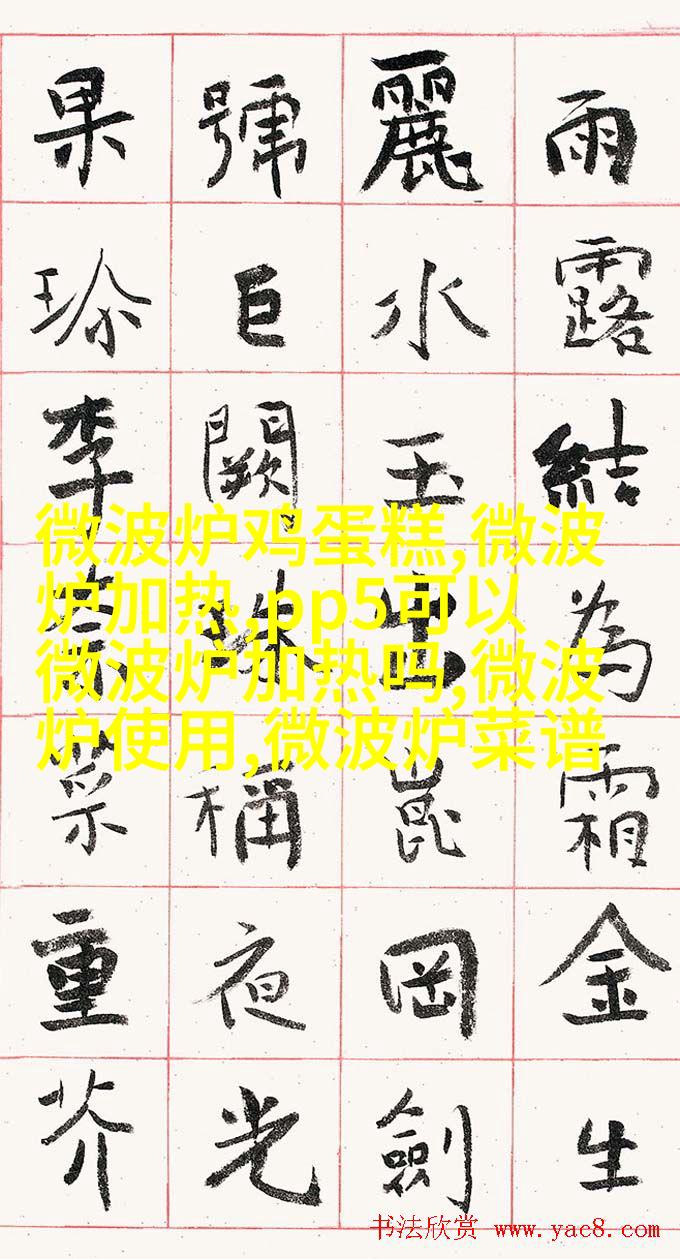 雨露結為霜金生
麗水玉出崑岡劍
號巨闕珠稱夜光
果珍李柰菜重芥
微波炉鸡蛋糕,微波
炉加热,pp5可以
微波炉加热吗,微波
炉使用,微波炉菜谱
书法欣赏 www.yac8.com